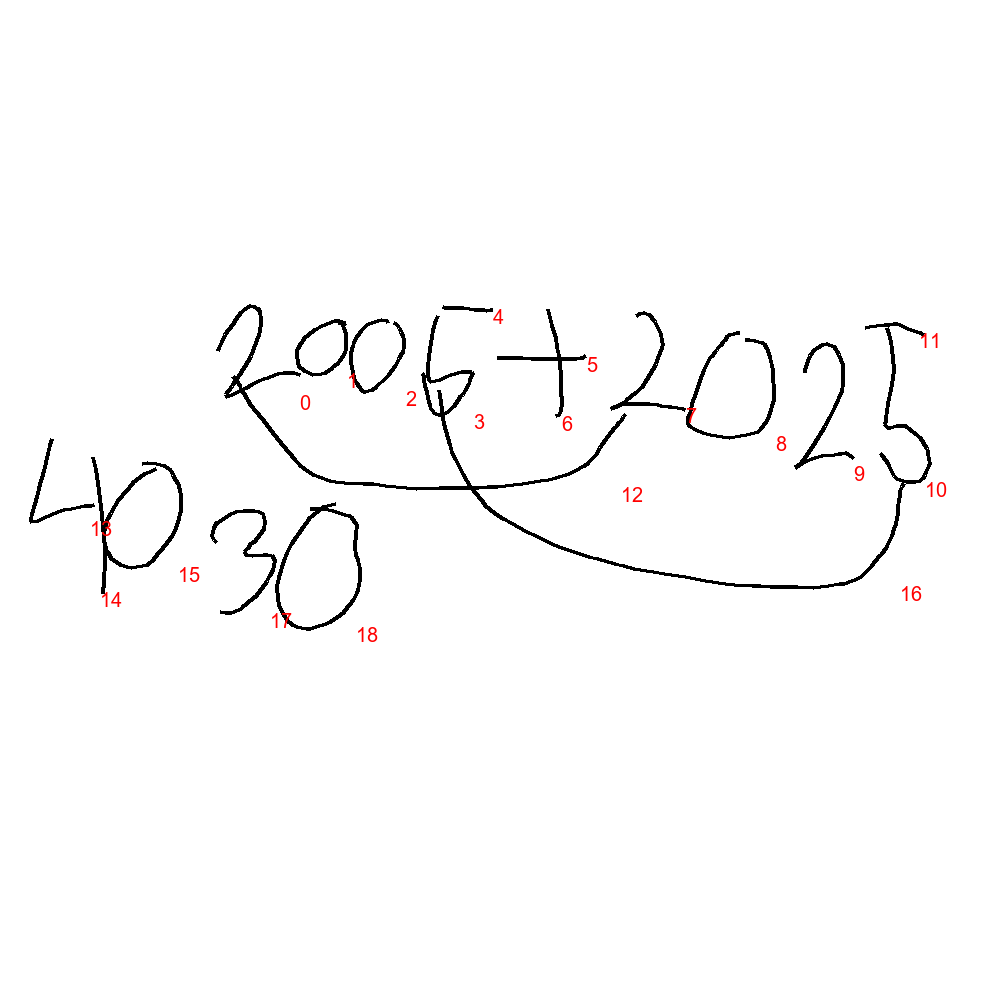 2005+2025
40 30
0 1 2 3 4 5 6 7 8 9 10 11 12 13 14 15 16 17 18